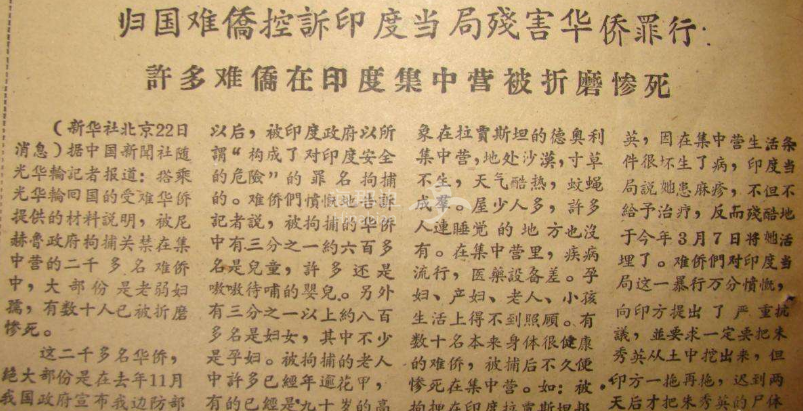 归国难僑控訴印度当局殘害华侨罪行:
許多难僑在印度集中营被折磨惨死
(新华社北京22日
消息)据中国新聞社随
光华輪記者报道:搭乘
光华輪回国的受难华侨
提供的材料説明,被尼
赫鲁政府拘捕关禁在集
中营的二千多名难侨
中,大部份是老弱妇
孺,有数十人已被折磨
惨死。
这二千多名华侨,
絕大部份是在去年11月
我国政府宣布我边防部
以后,被印度政府以所
謂"构成了对印度安全
的危險"的罪名拘捕
的。难侨們憤慨地告訴
記者說,被拘捕的华侨
中有三分之一約六百多
名是兒童,許多还是
嗷嗷待哺的嬰兒。另外
有三分之一以上約八百
多名是妇女,其中不少
是孕妇。被拘捕的老人
中許多已經年逾花甲,
有的已經是九十岁的高
桑在拉賈斯坦的德奥利
集中营,地处沙漠,寸草
不生,天气酷熱,蚊蝇
成羣。屋少人多,許多
人連睡覚的地方也沒
有。在集中营里,疾病
流行,医藥設备差。孕
妇、产妇、老人、小孩
生活上得不到照顾。有
数十名本来身体很健康
的难侨,被捕后不久便
惨死在集中营。如:被
拘押在印度拉賈斯坦邦
英,因在集中营生活条
件很坏生了病,印度当
局説她患麻疹,不但不
給予治疗,反而殘酷地
于今年3月7日将她活
埋了。难侨們对印度当
局这一暴行万分憤慨,
向印方提出了严重抗
議,並要求一定要把朱
秀英从土中挖出来,但
印方一拖再拖,迟到两
天后才把朱秀英的尸体